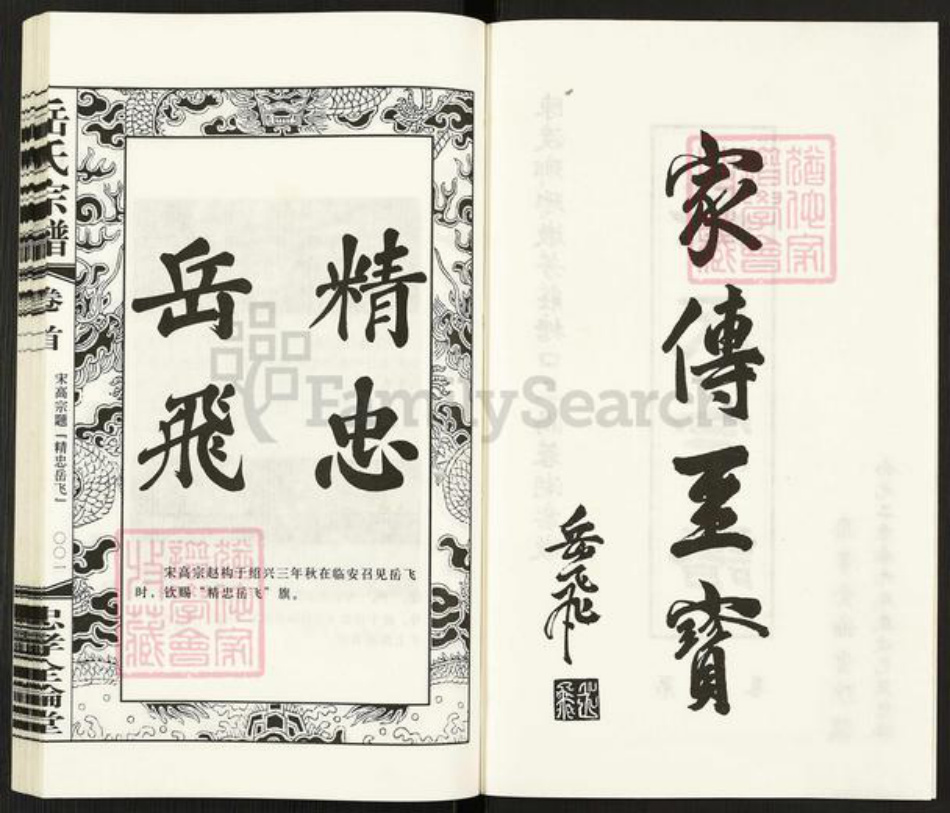 家傳至寶
岳飛
岳飛
精忠
岳飛
宋高宗赵构于绍兴三年秋在临安召见岳飞
时，钦赐“精忠岳飞”旗。
岳氏宗譜
卷首
宋高宗题『精忠岳飞』
〇〇一
忠孝全倫堂
FamilySearch